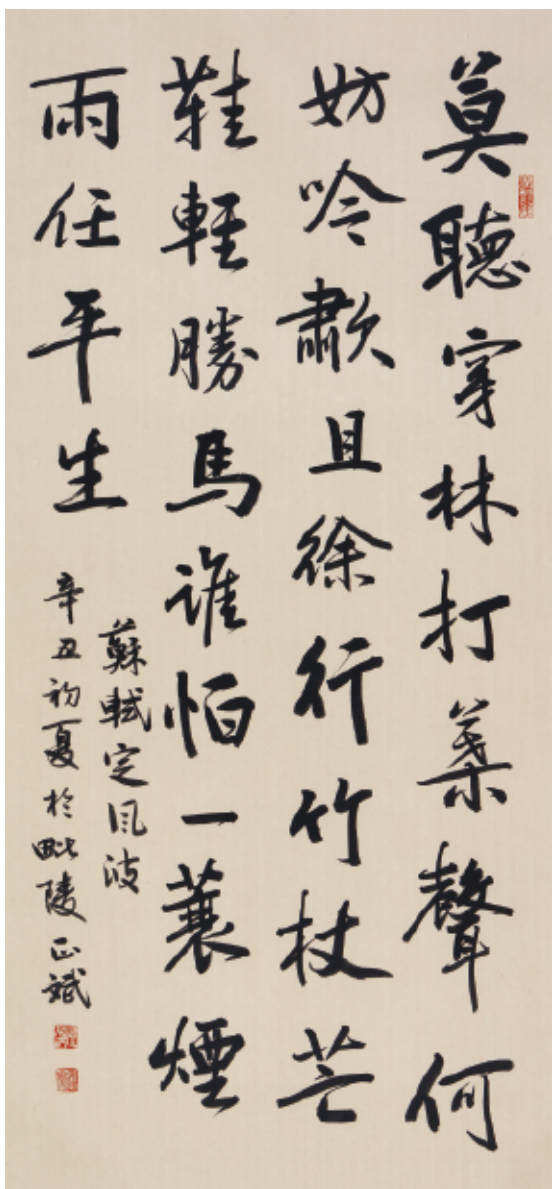 莫聽穿林打葉聲何
妨吟歗且徐行竹杖芒
鞋輕勝馬誰怕一蓑煙
雨任平生
蘇軾定風波
辛丑初夏於毗陵正斌